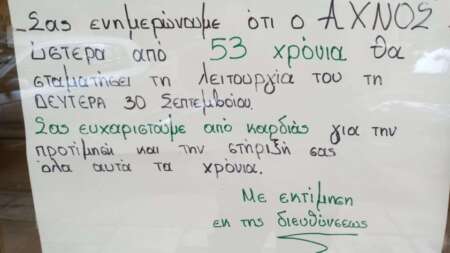 Σας ενημερώνουμε ότι ο ΑΧΝΟΣ
ώστερα από 53 χρόνια θα
σταματήσει τη λειτουργία του τη
ΔΕΥΤΕΡΑ 30 Σεπτεμβρίου.
Σας ευχαριστούμε από καρδιάς για την
προτίμηση και την στήριξή σας
όλα αυτά τα χρόνια.
Με εκτίμηση
εκ της διευθύνσεως